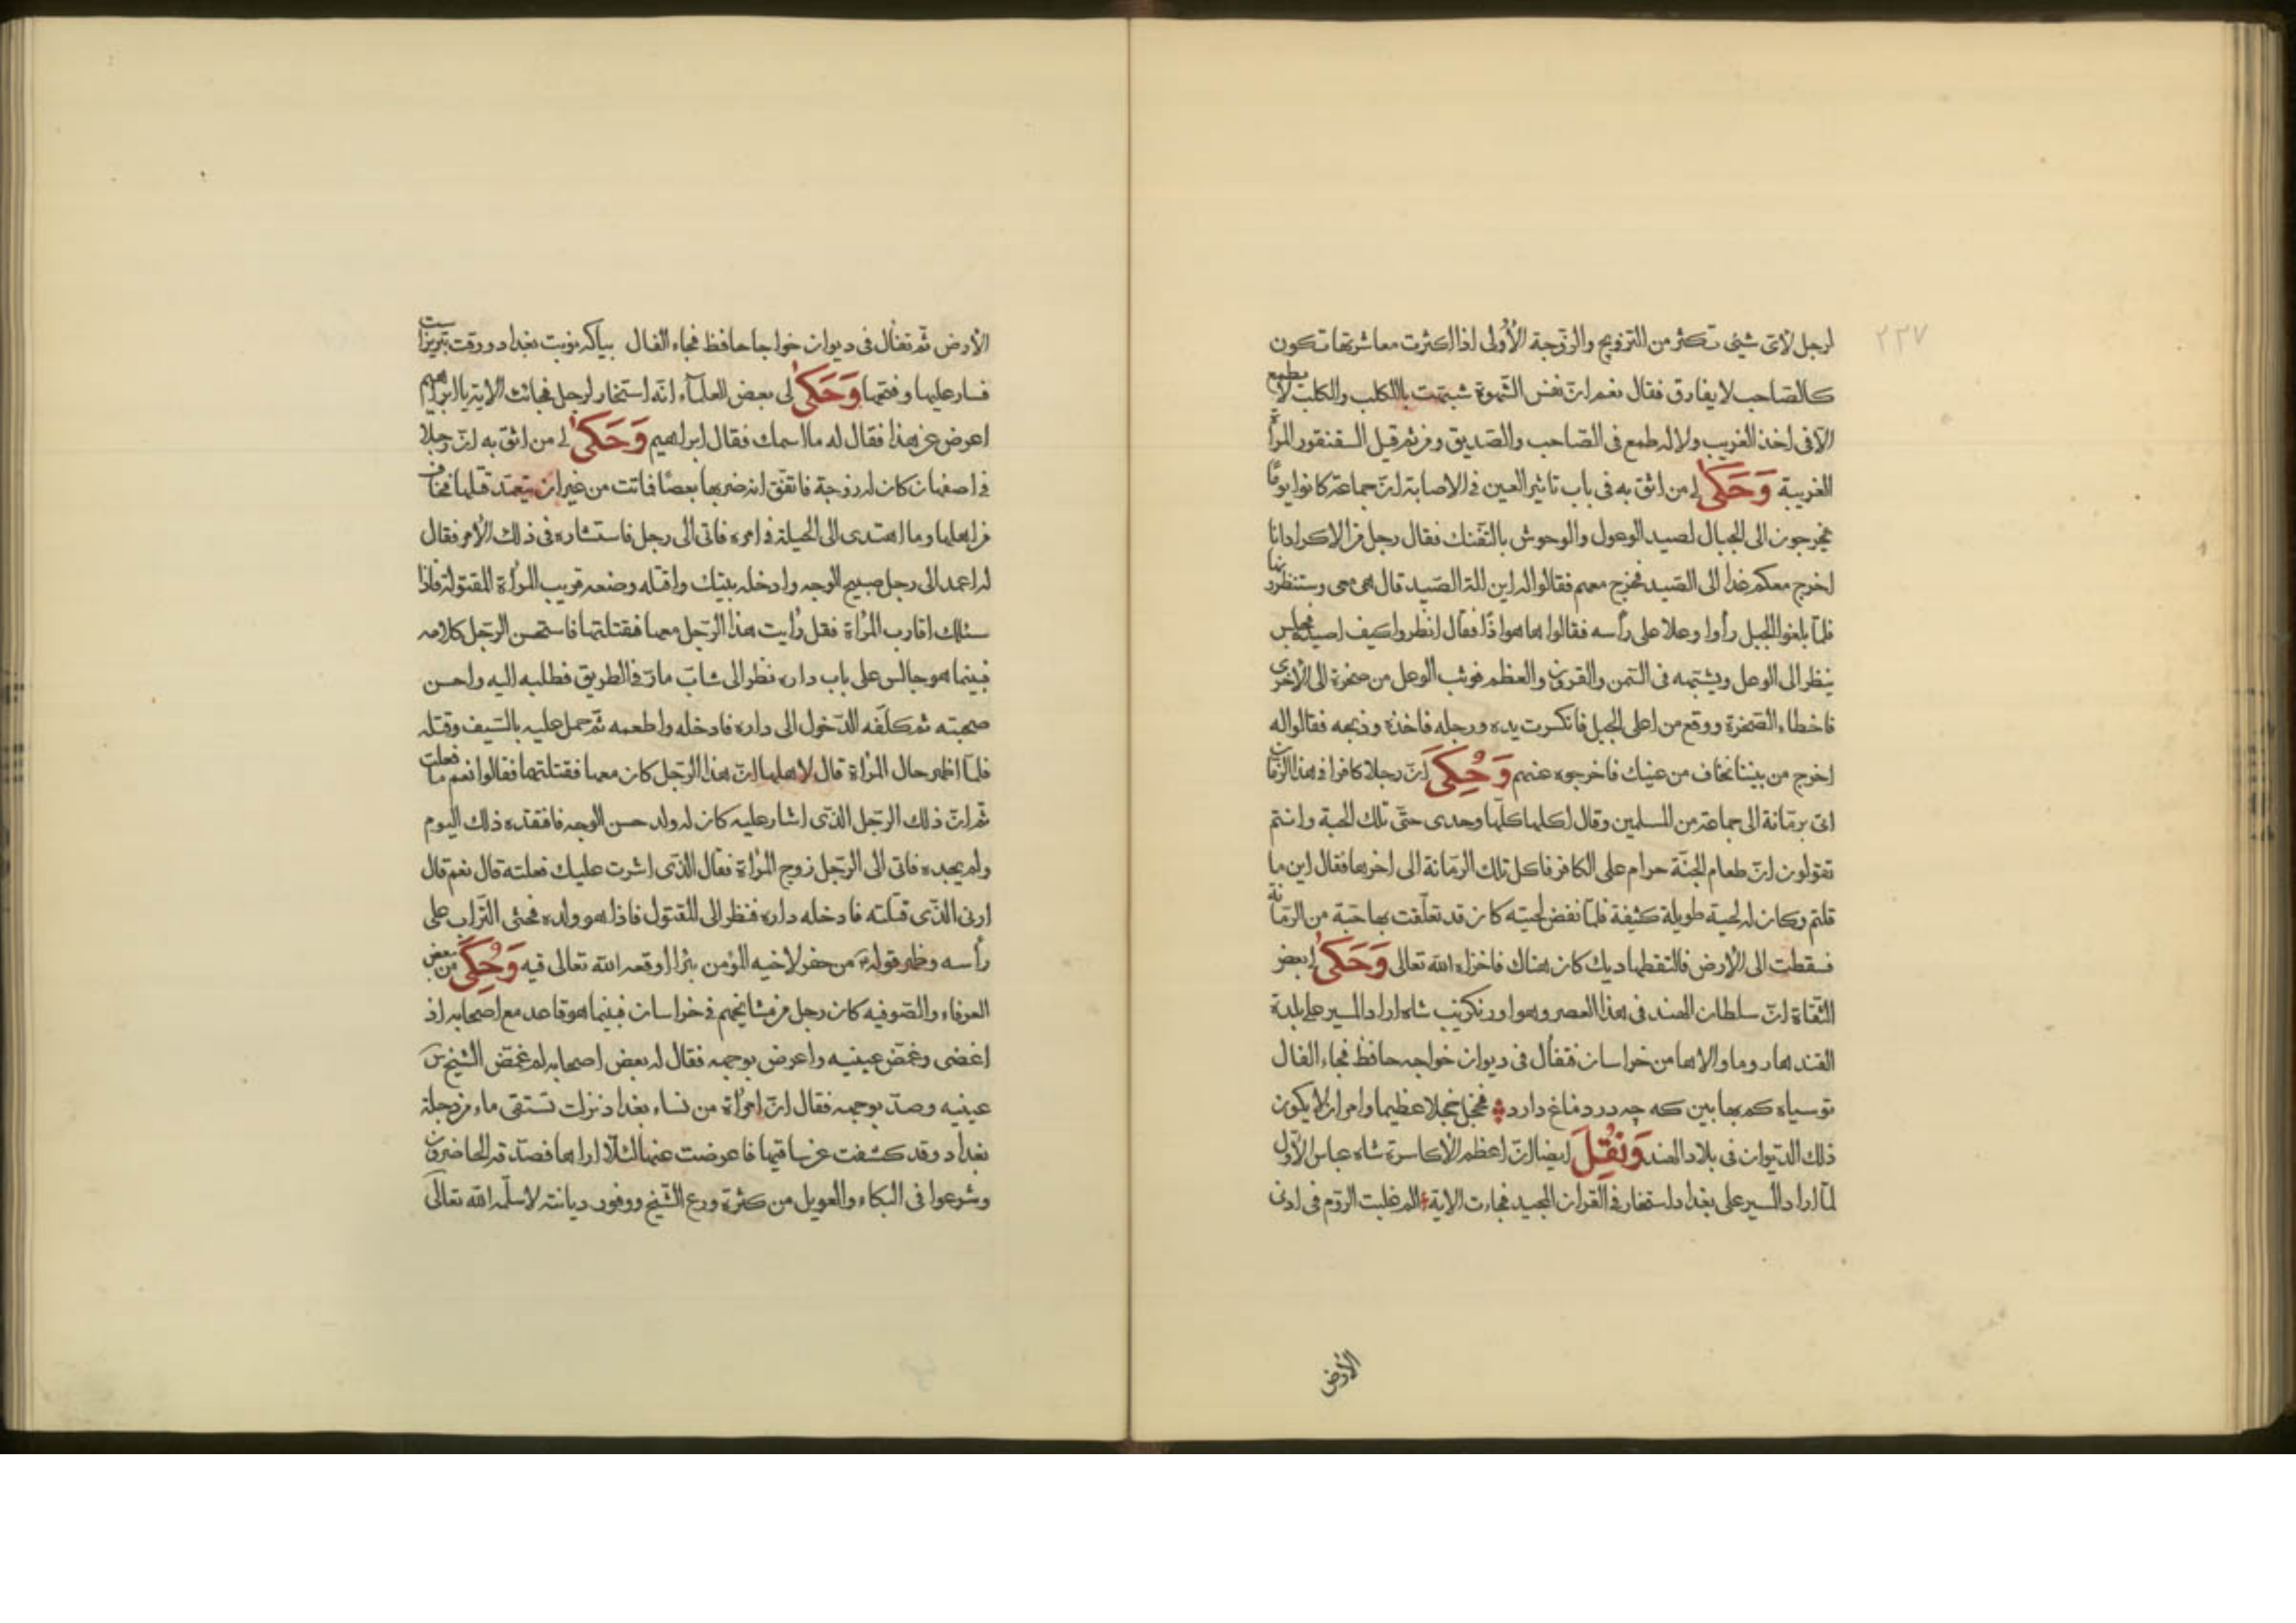 ٢٣٧
لرجل لأىّ شيئ تكثر من التزويج والزّوجة الأُولى اذا كثرت معاشرتها تكون
كالصّاحب لا يفارق فقال نعم انّ نفس الشّهوة شبّهت باالكلب والكلب لا يطمع
الّا فى اخذ الغريب ولا له طمع فى الصّاحب والصّديق ومن ثم قيل السقنقور المرأة
الغريبة وَحَكىٰ لى من اثق به فى باب تاثير العين فى الاصابة انّ جماعة كانوا يومًا
يخرجون الى الجبال لصيد الوعول والوحوش بالتّفنك فقال رجل من الاكراد انا
اخرج معكم غدا الى الصّيد فخرج معهم فقالوا له اين الة الصّيد قال هى معى وستنظرونها
فلمّا بلغوا الجبل رأوا وعلا على رأسه فقالوا ها هوا ذا فقال انظروا كيف اصيده فجلس
ينظر الى الوعل ويشبّهه فى السّمن والقرون والعظم فوثب الوعل من صخرة الى الأخرى
فاخطاء الصّخرة ووقع من اعلى الجبل فانكسرت يده ورجله فاخذه وذبحه فقالوا له
اخرج من بيننا نخاف من عينك فاخرجوه عنهم وَحُكِىَ انّ رجلا كافرا فى هذا الزّمان
اتى برمّانة الى جماعة من المسلمين وقال اكلها كلّها وحدى حتّى تلك الحبة وانتم
تقولون انّ طعام الجنّة حرام على الكافر فاكل تلك الرمّانة الى اخرها فقال اين ما
قلتم وكان له لحية طويلة كثيفة فلمّا نفض لحيته كان قد تعلّقت بها حبّة من الرمّانة
فسقطت الى الأرض فالتقطها ديك كان هناك فاخزاه الله تعالى وَحَكىٰ لى بعض
الثّقاة انّ سلطان الهند فى هذا العصر وهوا ورنكزيب شاه اراد المسير على بلدة
القندهار وما والاها من خراسان فتفأل فى ديوان خواجه حافظ فجاء الفال
توسياه كم بها بين كه چه در دماغ دارد فخجل خجلا عظيما وامر ان لا يكون
ذلك الديوان فى بلاد الهند وَنُقِلَ ايضا انّ اعظم الأكاسرة شاه عباس الأوّل
لمّا اراد المسير على بغداد استخار فى القران المجيد فجاءت الاية الم غلبت الرّوم فى ادنى
الأرض
الأرض ثمّ تفأل فى ديوان خواجا حافظ فجاء الفال بياكه نوبت بغداد ووقت تبريز است
فسار عليها وفتحها وَحَكىٰ لى بعض العلمآء انّه استخار لرجل فجائت الاية يا ابراهيم
اعرض عن هذا فقال له ما اسمك فقال ابراهيم وَحَكىٰ لى من اثق به انّ رجلا
فى اصفهان كان له زوجة فاتفق انه ضربها بعصًا فماتت من غير ان يتعمّد قتلها فخاف
من اهلها وما اهتدى الى الحيلة فى امره فاتى الى رجل فاستشاره فى ذلك الأمر فقال
له اعمد الى رجل صبيح الوجه وادخله بيتك واقتله وضعه قريب المرأة المقتولة فاذا
سئلك اقارب المرأة فقل رأيت هذا الرّجل معها فقتلتهما فاستحسن الرّجل كلامه
فبينما هو جالس على باب داره نظر الى شابّ مارّ فى الطريق فطلبه اليه واحسن
صحبته ثم كلّفه الدّخول الى داره فادخله واطعمه ثمّ حمل عليه بالسّيف وقتله
فلمّا اظهر حال المرأة قال لاهلها انّ هذا الرّجل كان معها فقتلتهما فقالوا نعم ما فعلت
ثم انّ ذلك الرّجل الّذى اشار عليه كان له ولد حسن الوجه فافتقده ذلك اليوم
ولم يجده فاتى الى الرّجل زوج المرأة فقال الّذى اشرت عليك فعلته قال نعم قال
ارنى الّذى قتلته فادخله داره فنظر الى المقتول فاذا هو ولده فحثى التّراب على
رأسه وظهر قوله من حفر لاخيه المؤمن بئرا اوقعه الله تعالى فيه وَحُكِىَ من بعض
العرفاء والصّوفيه كان رجل من مشايخهم فى خراسان فبينما هو قاعد مع اصحابه اذ
اغضى وغمّض عينيه واعرض بوجهه فقال له بعض اصحابه لم غمّض الشيخ
عينيه وصدّ بوجهه فقال انّ امرأة من نساء بغداد نزلت تستقى ماء من دجلة
بغداد وقد كشفت عن ساقيها فاعرضت عنها لئلّا اراها فصدّقه الحاضرون
وشرعوا فى البكاء والعويل من كثرة ورع الشّيخ ووفور ديانته لا سلّمه الله تعالى